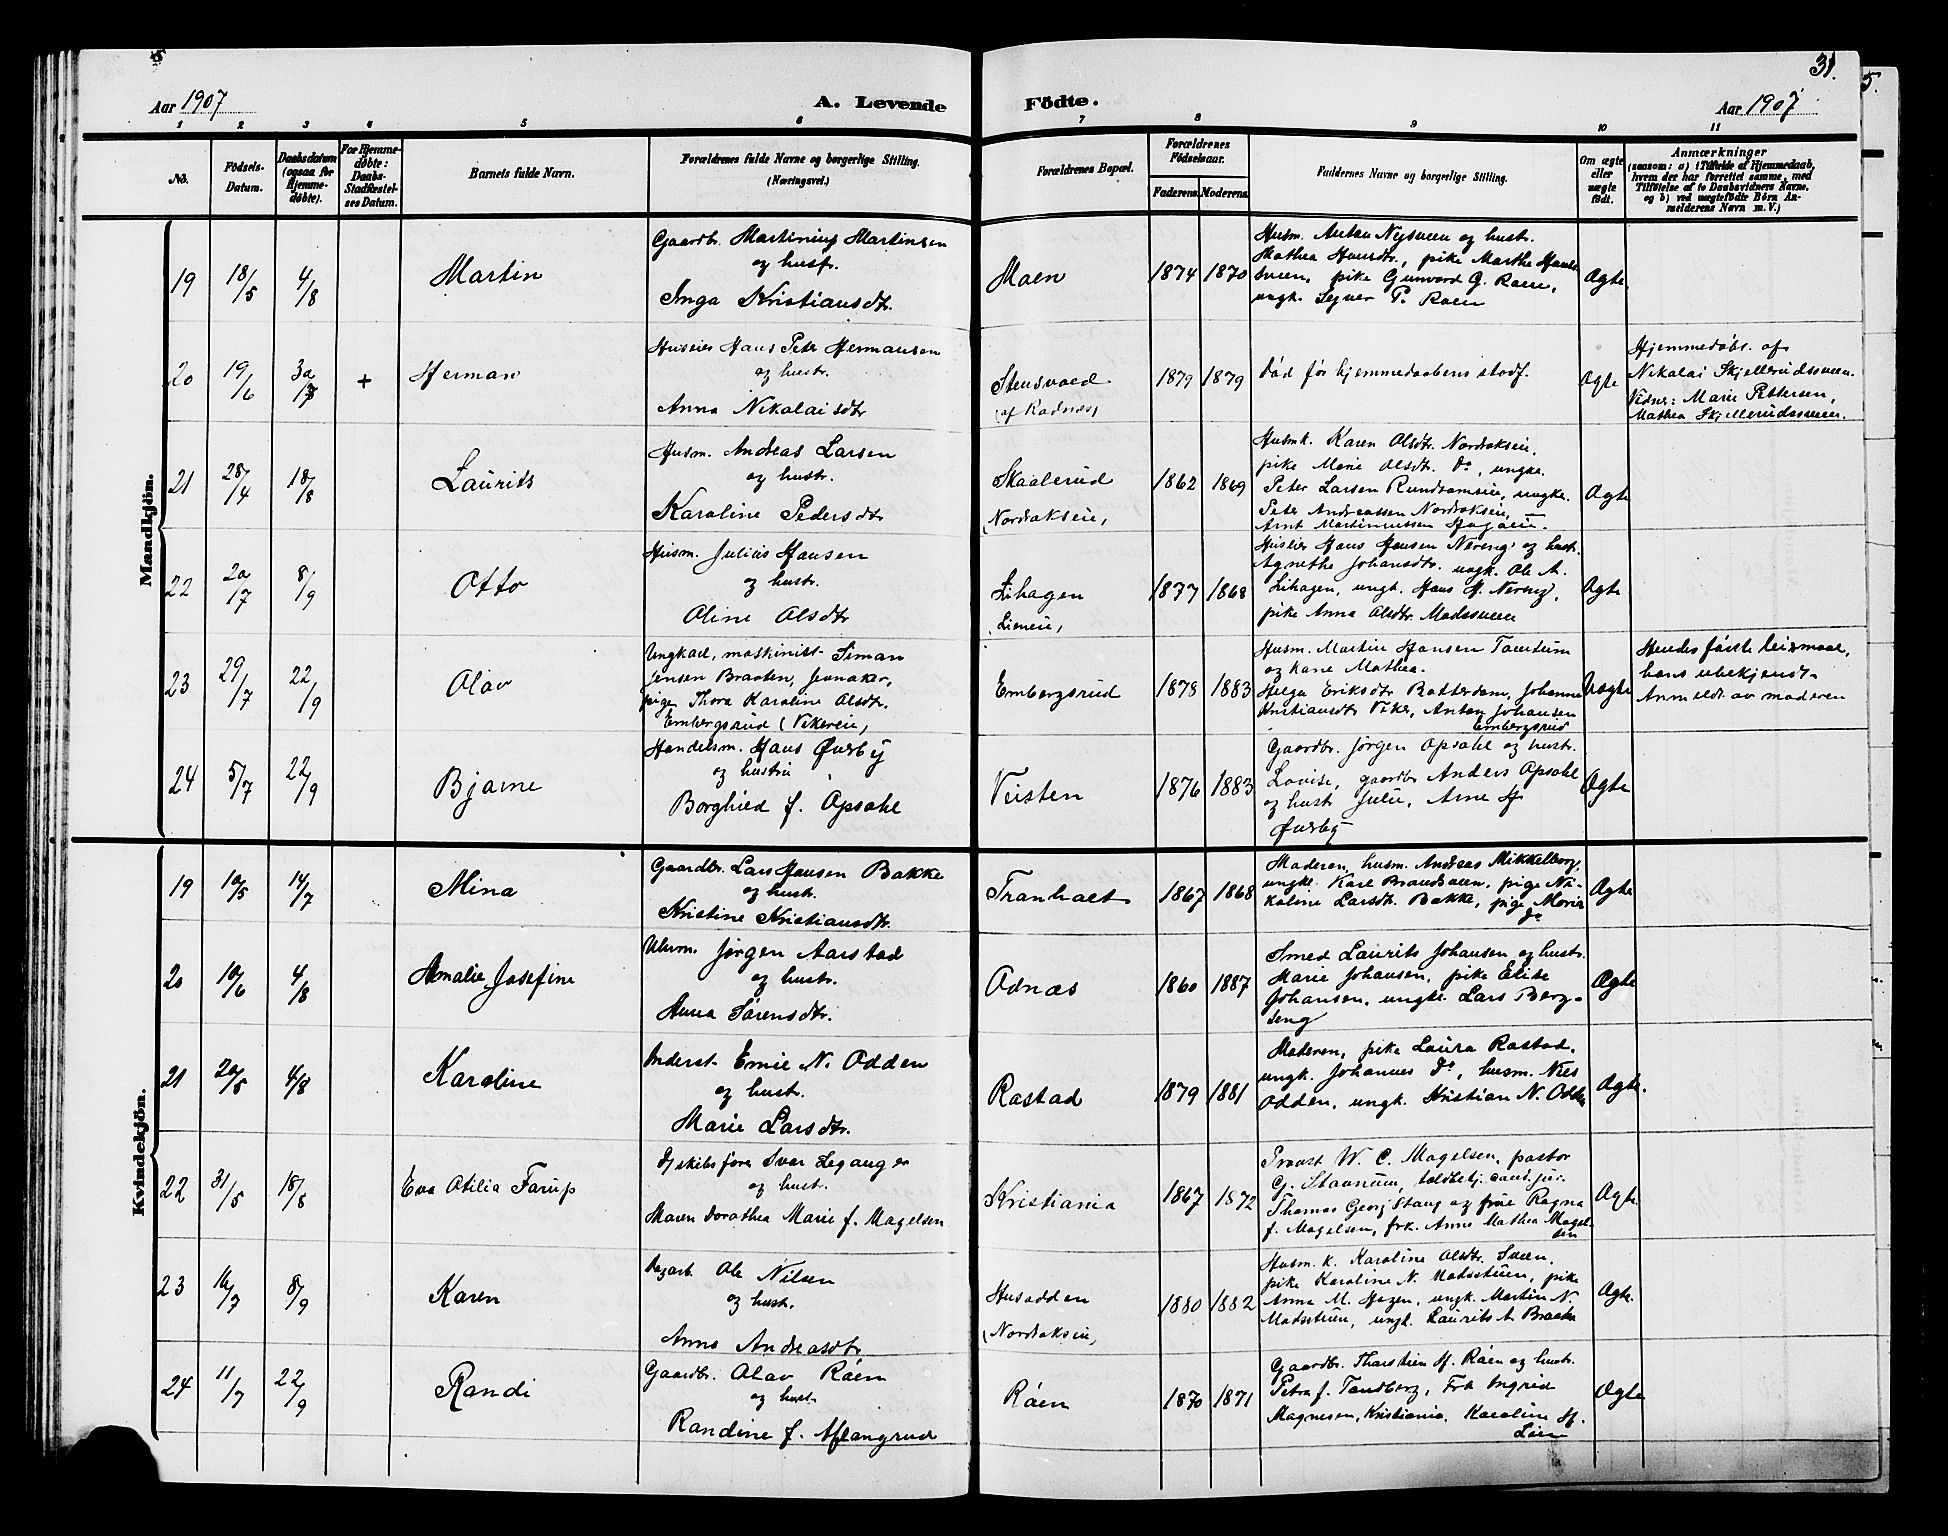 5
31.
5.
Aar 1907
A. Levende
Fødte.
Aar 1907
1 2 3 4 5 6 7 8 9 10 11
No.
Födsels-Datum.
Daabsdatum (ogsaa for Hjemmedöbte).
For Hjemmedøbte: Daabs-Stadfæstelses Datum.
Barnets fulde Navn.
Forældrenes fulde Navne og borgerlige Stilling.
(Næringsvei.)
Forældrenes Bopæl.
Forældrenes Födselsaar.
Faderens. Moderens.
Faddernes Navne og borgerlige Stilling.
Om ægte eller uægte født.
Anmærkninger
(saasom: a) i Tilfælde af Hjemmedaab,
hvem der har forrettet samme, med
Tilföielse af to Daabsvidners Navne.
og b) ved uægtefødte Børn An-
melderens Navn m. V.)
Mandkjön.
19 18/5 4/8 Martin
Gaardbr. Martinius Martinsen
og hustr.
Inga Kristiansdtr.
Moen 1874 1870
Husm. Anton Nysveen og hustr.
Mathea Hansdtr., pike Marthe
sveen, pike Gunvord G. Roen,
ungk. P. Roen
Ægte
20 19/6 + Herman
Huseier Hans Peter Hermansen
og hustr.
Anna Nikolaisdtr
Stensvold
(af Kodnæs)
1879 1879
død før hjemmedaabens stadf.
Ægte
Hjemmedøbt af
Nikolai Skjellerudsveen.
Vidner: Marie Pettersen,
Mathea Skjellerudsveen.
21 28/4 18/8 Laurits
Husm. Andreas Larsen
og hustr.
Karoline Pedersdtr
Skaalerud
(Nordakseie)
1862 1869
Husmk. Karen Olsdtr. Nordakseie,
pike Marie Olsdtr. do, ungk.
Peter Larsen, ungk.
Peter Andreassen Nordakseie,
Arnt Martinussen
Ægte
22 20/7 8/9 Otto
Husm. Julius Hansen
og hustr.
Oline Olsdtr
Lihagen
(Lieneie)
1877 1868
Huseier Hans Hansen Nereng og hustr.
Agnethe Johansdtr. ungk. Ole A.
Lihagen, ungk. Hans H. Nereng,
pike Anna Olsdtr. Madssveen
Ægte
23 29/7 22/9 Olav
Ungkarl, maskinist Simon
Jensen Braaten, Jevnaker,
pige Thora Karoline Olsdtr.
Embergsrud (Vikereie)
Embergsrud 1878 1883
Husm. Martin Hansen
og kone Mathea.
Helga Eriksdtr Rotterdam, Johanne
Kristiansdtr Vike, Anton Johansen
Embergsrud
Uægte
Hendes første leiermaal,
hans ubekjendt.
Anmeldt av moderen
24 5/7 22/9 Bjarne
Handelsm. Hans Øverby
og hustru
Borghild f. Opsahl
Veisten 1876 1883
Gaardbr. Jørgen Opsahl og hustr.
Lovise, gaardbr Anders Opsahl
og hustr Julie, Arne H
Øverby
Ægte
Kvindekjön.
19 10/5 14/7 Mina
Gaardbr. Lars Hansen Bakke
og hustr.
Kristine Kristiansdtr.
Tranholt 1867 1868
Moderen, husm. Andreas Mikkelborg,
ungk. Karl Brandsveen, pige Ni-
koline Larsdtr. Bakke, pige Maria
do
Ægte
20 10/6 4/8 Amalie Josefine
Uhrm. Jørgen Aarstad
og hustr.
Anna Sørensdtr.
Odnæs 1860 1887
Smed Laurits Johansen og hustr.
Marie Johansen, pike Elise
Johansen, ungk. Lars Berg-
seng
Ægte
21 20/5 4/8 Karoline
Inderst Emil N. Odden
og hustr.
Marie Larsdtr.
Rastad 1879 1881
Moderen, pike Laura Rastad.
ungk. Johannes do, husm. Nils
Odden, ungk. Kristian N. Odden
Ægte.
22 31/5 18/8 Eva Otilia Farup
Skibsfører Ivar Leganger
og hustr.
Maren Dorothea Marie f. Magelsen
Kristiania 1867 1872
Provst W. C. Magelsen, pastor
G. Stavnum, toldbetj. cand. jur.
Thomas Georg Stang og frue Ragna
f. Magelsen, frk. Anne Mathea Magel-
sen
Ægte
23 16/7 8/9 Karen
Dagarb. Ole Nilsen
og hustr.
Anne Andreasdtr
Husodden
(Nordakseie)
1880 1882
Husm. k. Karoline Olsdtr. Sveen,
pike Karoline N. Madsstuen, pike
Anna M. Hagen, ungk. Martin N.
Madsstuen, ungk. Laurits A Braaten
Ægte.
24 11/7 22/9 Randi
Gaardbr. Olav Röen
og hustr
Randine f. Aflangrud
Röen 1870 1871
Gaardbr. Thorstein H. Röen og hustr.
Petra f. Tandberg, Frk Ingrid
Magnesen, Kristiania. Karoline H.
Lien
Ægte